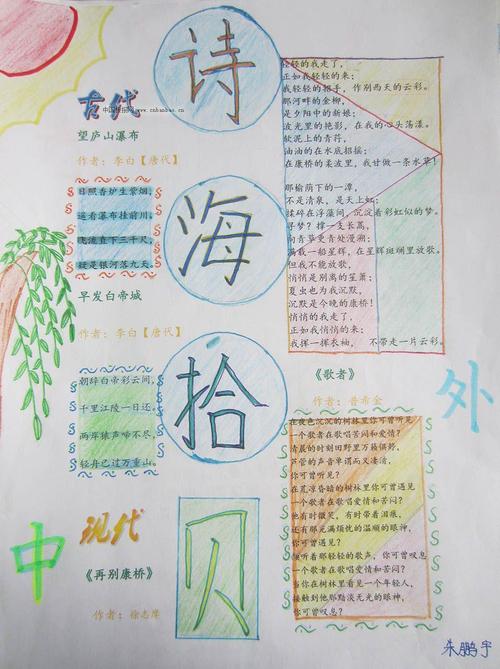 诗
海
拾
贝
古代
www.cnbanbao.cn
望庐山瀑布
作者：李白【唐代】
日照香炉生紫烟，
遥看瀑布挂前川，
飞流直下三千尺，
疑是银河落九天。
早发白帝城
作者：李白【唐代】
朝辞白帝彩云间，
千里江陵一日还。
两岸猿声啼不尽，
轻舟已过万重山。
现代
《再别康桥》
作者：徐志摩
中
轻轻的我走了，
正如我轻轻的来；
我轻轻的招手，作别西天的云彩。
那河畔的金柳，
是夕阳中的新娘；
波光里的艳影，在我的心头荡漾。
软泥上的青荇，
油油的在水底招摇；
在康桥的柔波里，我甘做一条水草！
那榆荫下的一潭，
不是清泉，是天上虹；
揉碎在浮藻间，沉淀着彩虹似的梦。
寻梦？撑一支长蒿，
向青草更青处漫溯；
满载一船星辉，在星辉斑斓里放歌。
但我不能放歌，
悄悄是别离的笙萧；
夏虫也为我沉默，
沉默是今晚的康桥！
悄悄的我走了，
正如我悄悄的来；
我挥一挥衣袖，不带走一片云彩。
外
《歌者》
作者：普希金
在夜色沉沉的树林里你可曾听见
一个歌者在歌唱苦闷和爱情？
清晨的时刻田野里万籁俱静，
芦管的声音单调而又凄清，
你可曾听见？
在荒凉昏暗的树林里你可曾遇见
一个歌者在歌唱爱情和苦闷？
他有时微笑，有时带着泪痕，
还有那充满烦忧的温顺的眼神，
你可曾遇见？
倾听着那轻轻的歌声，你可曾叹息
一个歌者在歌唱爱情和苦闷？
当你在树林里看见一个年轻人，
接触到他那黯淡无光的眼神，
你可曾叹息？
朱鹏宇